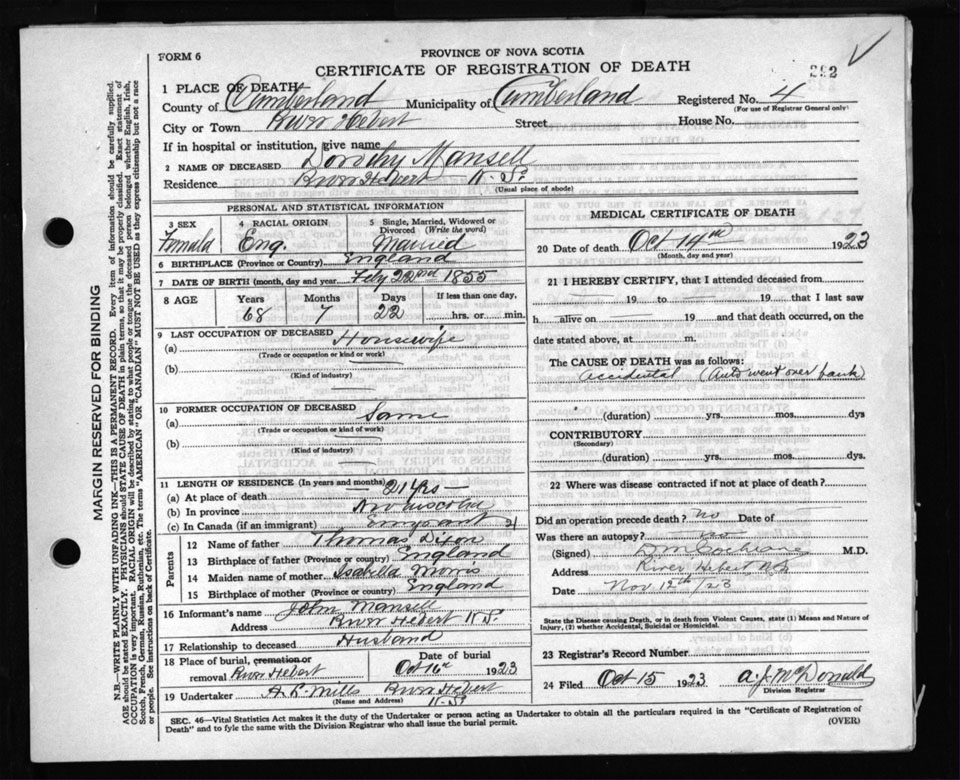 FORM 6
PROVINCE OF NOVA SCOTIA
CERTIFICATE OF REGISTRATION OF DEATH
1 PLACE OF DEATH
County of Cumberland Municipality of Cumberland Registered No. 4
(For use of Registrar General only)
City or Town River Hebert Street House No.
If in hospital or institution, give name
2 NAME OF DECEASED Dorothy Mansell
Residence River Hebert N.S.
(Usual place of abode)
PERSONAL AND STATISTICAL INFORMATION
3 SEX 4 RACIAL ORIGIN 5 Single, Married, Widowed or Divorced (Write the word)
Female Eng. Married
6 BIRTHPLACE (Province or Country) England
7 DATE OF BIRTH (month, day and year) Feby 22nd 1855
8 AGE Years Months Days If less than one day,
68 7 22 hrs. or min.
9 LAST OCCUPATION OF DECEASED Housewife
(a)
(Trade or occupation or kind or work)
(b)
(Kind of industry)
10 FORMER OCCUPATION OF DECEASED Same
(a)
(Trade or occupation or kind or work)
(b)
(Kind of industry)
11 LENGTH OF RESIDENCE (In years and months) 21 yrs
(a) At place of death
(b) In province Novascotia
(c) In Canada (if an immigrant) 21
Parents
12 Name of father Thomas Dixon
13 Birthplace of father (Province or country) England
14 Maiden name of mother Isabella Morris
15 Birthplace of mother (Province or country) England
16 Informant's name John Mansell
Address River Hebert N.S.
17 Relationship to deceased Husband
18 Place of burial, cremation or removal River Hebert Date of burial Oct 16th 1923
19 Undertaker A.R. Mills River Hebert
(Name and Address) N.S.
MEDICAL CERTIFICATE OF DEATH
20 Date of death Oct 14th 1923
(Month, day and year)
21 I HEREBY CERTIFY, that I attended deceased from
19 to 19 that I last saw
h alive on 19 and that death occurred, on
date stated above, at m.
The CAUSE OF DEATH was as follows:
accidental (Auto went over bank)
(duration) yrs. mos. dys
CONTRIBUTORY
(Secondary)
(duration) yrs. mos. dys.
22 Where was disease contracted if not at place of death?
Did an operation precede death? no Date of
Was there an autopsy?
(Signed) D M Cochrane M.D.
Address River Hebert N.S.
Date Nov 12th/23
State the Disease causing Death, or in death from Violent Causes, state (1) Means and Nature of Injury, (2) whether Accidental, Suicidal or Homicidal.
23 Registrar's Record Number
24 Filed Oct 15 1923 A. J. McDonald
Division Registrar
SEC. 46—Vital Statistics Act makes it the duty of the Undertaker or person acting as Undertaker to obtain all the particulars required in the "Certificate of Registration of
Death" and to fyle the same with the Division Registrar who shall issue the burial permit. (OVER)
MARGIN RESERVED FOR BINDING
N.B.—WRITE PLAINLY WITH UNFADING INK—THIS IS A PERMANENT RECORD. Every item of information should be carefully supplied.
AGE should be stated EXACTLY. PHYSICIANS should STATE CAUSE OF DEATH in plain terms, so that it may be properly classified. Exact statement of
OCCUPATION is very important. RACIAL ORIGIN will be described by stating to what people or tongue the deceased person belonged, whether English, Irish,
Scotch, French, German, Russian, Ruthenian, etc. The terms "AMERICAN" OR "CANADIAN" MUST NOT BE USED as they express citizenship but not a race
or people. See instructions on back of Certificate.